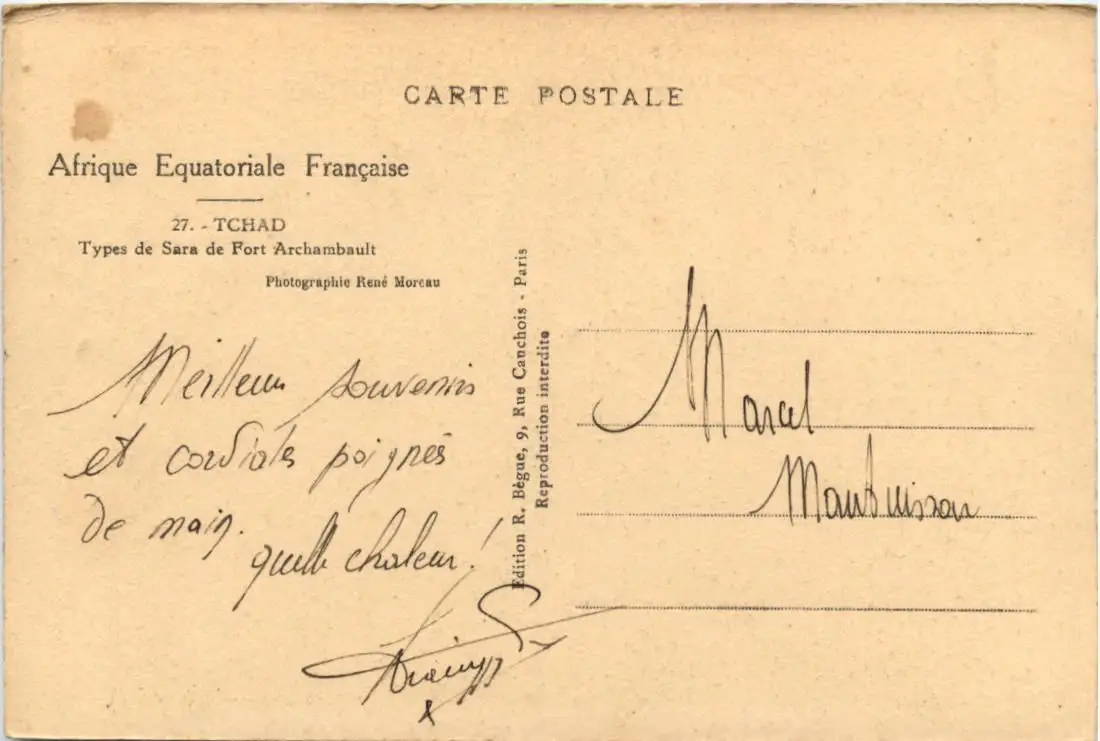 CARTE POSTALE
Afrique Equatoriale Française
27. - TCHAD
Types de Sara de Fort Archambault
Photographie René Moreau
Meilleurs souvenirs
et cordiales poignés
de main.
quelle chaleur!
Edition R. Bègue, 9, Rue Cauchois - Paris
Reproduction interdite
Marcel
Maubuisson